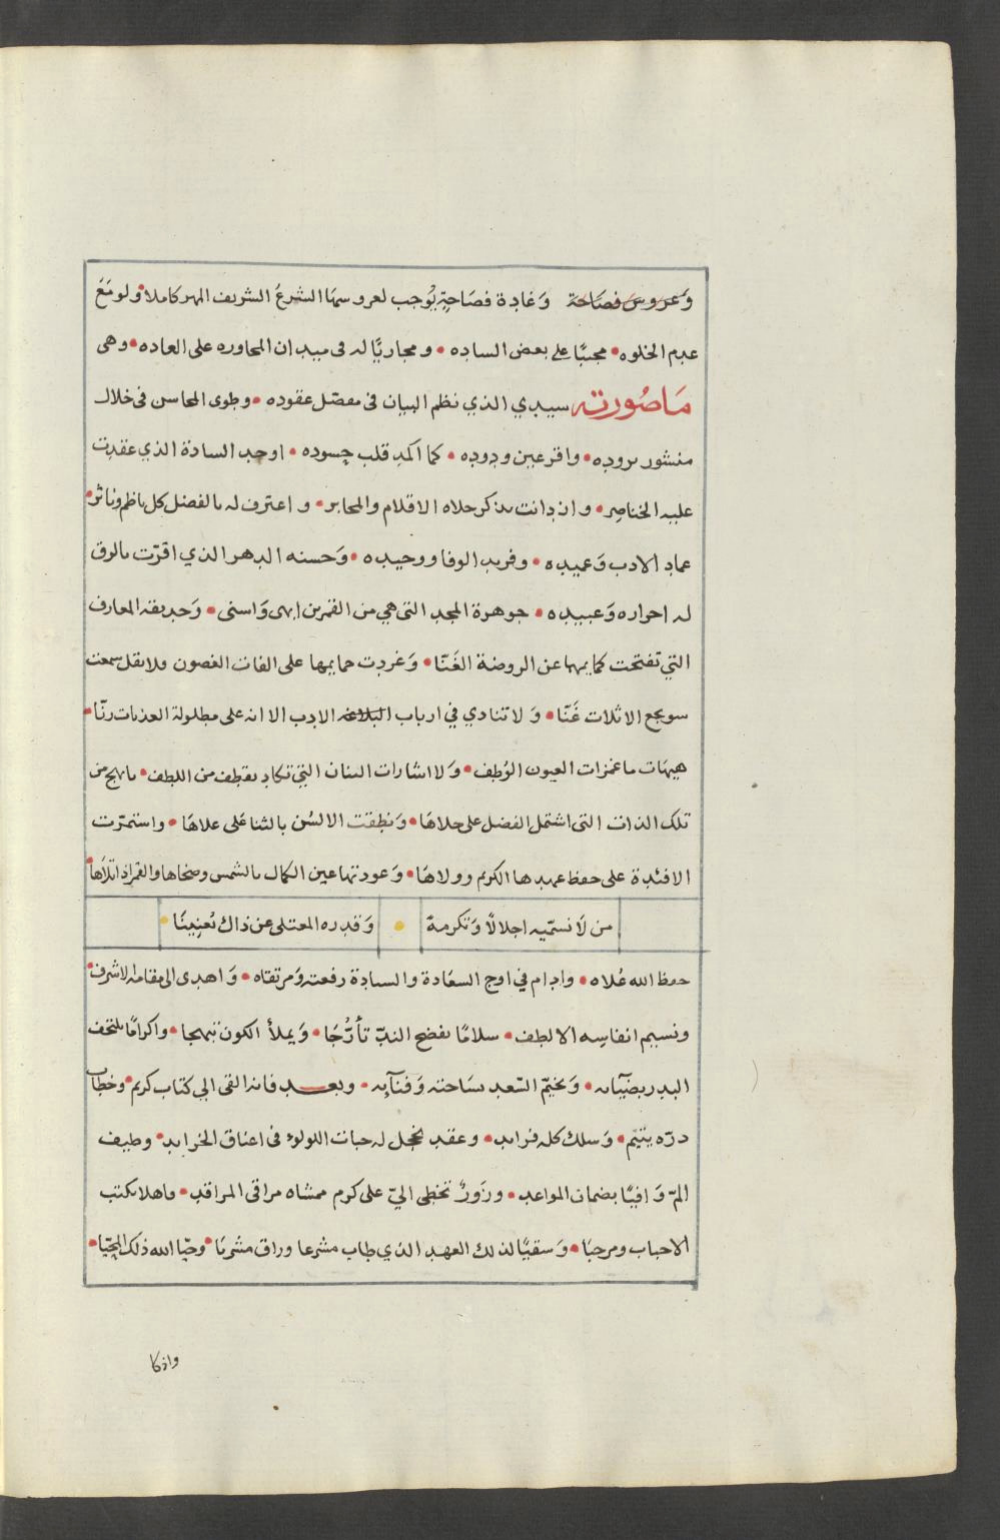 وَعروس فصَاحة وَغادة فصَاحةٍ يُوجب لعروسهَا الشرعُ الشريف المهر كاملا • ولو مَعَ
عدم الخلوه • مجيبًا على بعض الساده • ومجاريًا له فى ميدان المحاوره على العاده • وهى
مَا صُورته سيدي الذي نظم البيان فى مفصّل عقوده • وطوى المحاسن فى خلال
منشور بروده • واقر عين ودوده • كما اكمد قلب حسوده • اوحد السادة الذي عقدت
عليه الخناصر • وازدانت بذكر حلاه الاقلام والمحابر • واعترف له بالفضل كل ناظم وناثر •
عماد الادب وَعميده • وفريد الوفا ووحيده • وَحسنه الدهر الذي اقرّت بالرق
له احراره وَعبيده • جوهرة المجد التى هي من القمرين ابهى وَاسنى • وَحديقه المعارف
التي تفتحت كمايمها عن الروضة الغَنّا • وَغردت حمايمها على الفات الغصون فلا تقل سمعت
سويجع الاثلات غَنّا • وَ لا تنادي في ارباب البلاغه الادب الا انه على مطلولة العذبات رنّا •
هيهَات ما غمزات العيون الوُطف • وَلا اشارات البنان التيَ تكاد تقطف من اللطف • بابهج من
تلك الذات التى اشتمل الفضل على حلاهَا • وَنطِقت الالسُن بالثنا عَلى علاهَا • واستمرّت
الافئدة على حفظ عهدها الكريم وولاهَا • وَعودتها عين الكمال بالشمس وضحاها والقمر اذا تلاَهاَ •
من لَا نسمّيه اجلالًا وَتكرمةً • وَقدره المعتلى عن ذاك يُغنِينَا •
حفظ الله عُلاه • وادام في اوج السعَادة والسيادة رفعته وَمرتقاه • وَاهدى الى مقامه الاشرف •
ونسيم انفاسِه الالطف • سلامًا يفضح الندّ تأرُّجًا • وَيملأ الكون تبهجا • واكرامًا يلتحف
البدر بضيَآئه • وَيخيّم السّعد بسَاحته وَفنآيِه • وبعـــد فانه القى الي كتاب كريم • وخطاب
درّه يتيَم • وَسلك كله فرايد • وعقد تخجل له حبات اللولوء فى اعناق الخرايد • وطيف
المّ وَافيًا بضمان المواعد • وزَورٌ تخطى اليّ على كرم ممشاه مراقى المراقد • فاهلا بكتب
الاحباب ومرحبًا • وَسقيًا لذلك العهد الذي طاب مشرعا وراق مشربًا • وحيّا الله ذلك المحيّا •
واذكا